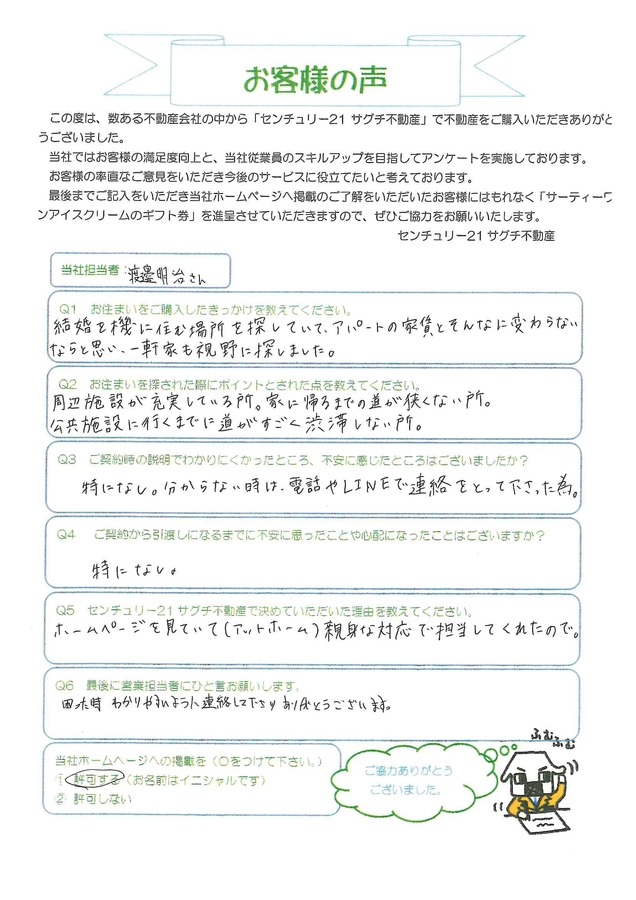 お客様の声
この度は、数ある不動産会社の中から「センチュリー21 サグチ不動産」で不動産をご購入いただきありがと
うございました。
当社ではお客様の満足度向上と、当社従業員のスキルアップを目指してアンケートを実施しております。
お客様の率直なご意見をいただき今後のサービスに役立てたいと考えております。
最後までご記入をいただき当社ホームページへ掲載のご了解をいただいたお客様にはもれなく「サーティーワ
ンアイスクリームのギフト券」を進呈させていただきますので、ぜひご協力をお願いいたします。
センチュリー21 サグチ不動産
当社担当者：渡邉明治さん
Q1 お住まいをご購入したきっかけを教えてください。
結婚を機に住む場所を探していて、アパートの家賃とそんなに変わらない
ならと思い、一軒家も視野に探しました。
Q2 お住まいを探された際にポイントとされた点を教えてください。
周辺施設が充実している所。家に帰るまでの道が狭くない所。
公共施設に行くまでに道がすごく渋滞しない所。
Q3 ご契約時の説明でわかりにくかったところ、不安に感じたところはございましたか？
特になし。分からない時は、電話やLINEで連絡をとって下さった為。
Q4 ご契約から引渡しになるまでに不安に思ったことや心配になったことはございますか？
特になし。
Q5 センチュリー21 サグチ不動産で決めていただいた理由を教えてください。
ホームページを見ていて(アットホーム)親身な対応で担当してくれたので。
Q6 最後に営業担当者にひと言お願いします。
困った時わかりやすいように連絡して下さりありがとうございます。
当社ホームページへの掲載を（○をつけて下さい。）
① 許可する（お名前はイニシャルです）
② 許可しない
ご協力ありがとう
ございました。
ふむふむ